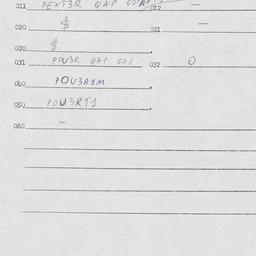 011 012 —
020 $ 021 —
030 $
031 POU3R QAP GOJ 032 0
040 POU3RJM
050 POU3RTJ
060 —